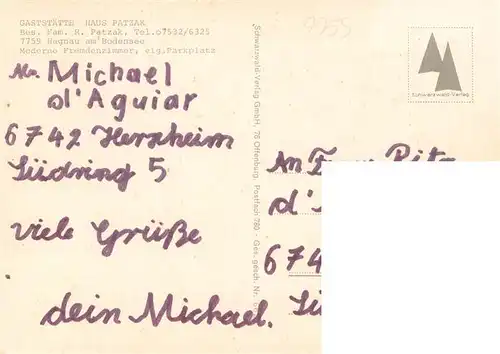 GASTSTÄTTE HAUS PATZAK
Bes. Fam. R. Patzak, Tel.07532/6325
7759 Hagnau am Bodensee
Moderne Fremdenzimmer, eig.Parkplatz
Abs. Michael
d'Aguiar
6742 Herxheim
Südring 5
viele Grüße
dein Michael.
Schwarzwald-Verlag GmbH. 76 Offenburg. Postfach 780 - Ges. gesch. Nr.
Schwarzwald-Verlag
An Frau
d'
674